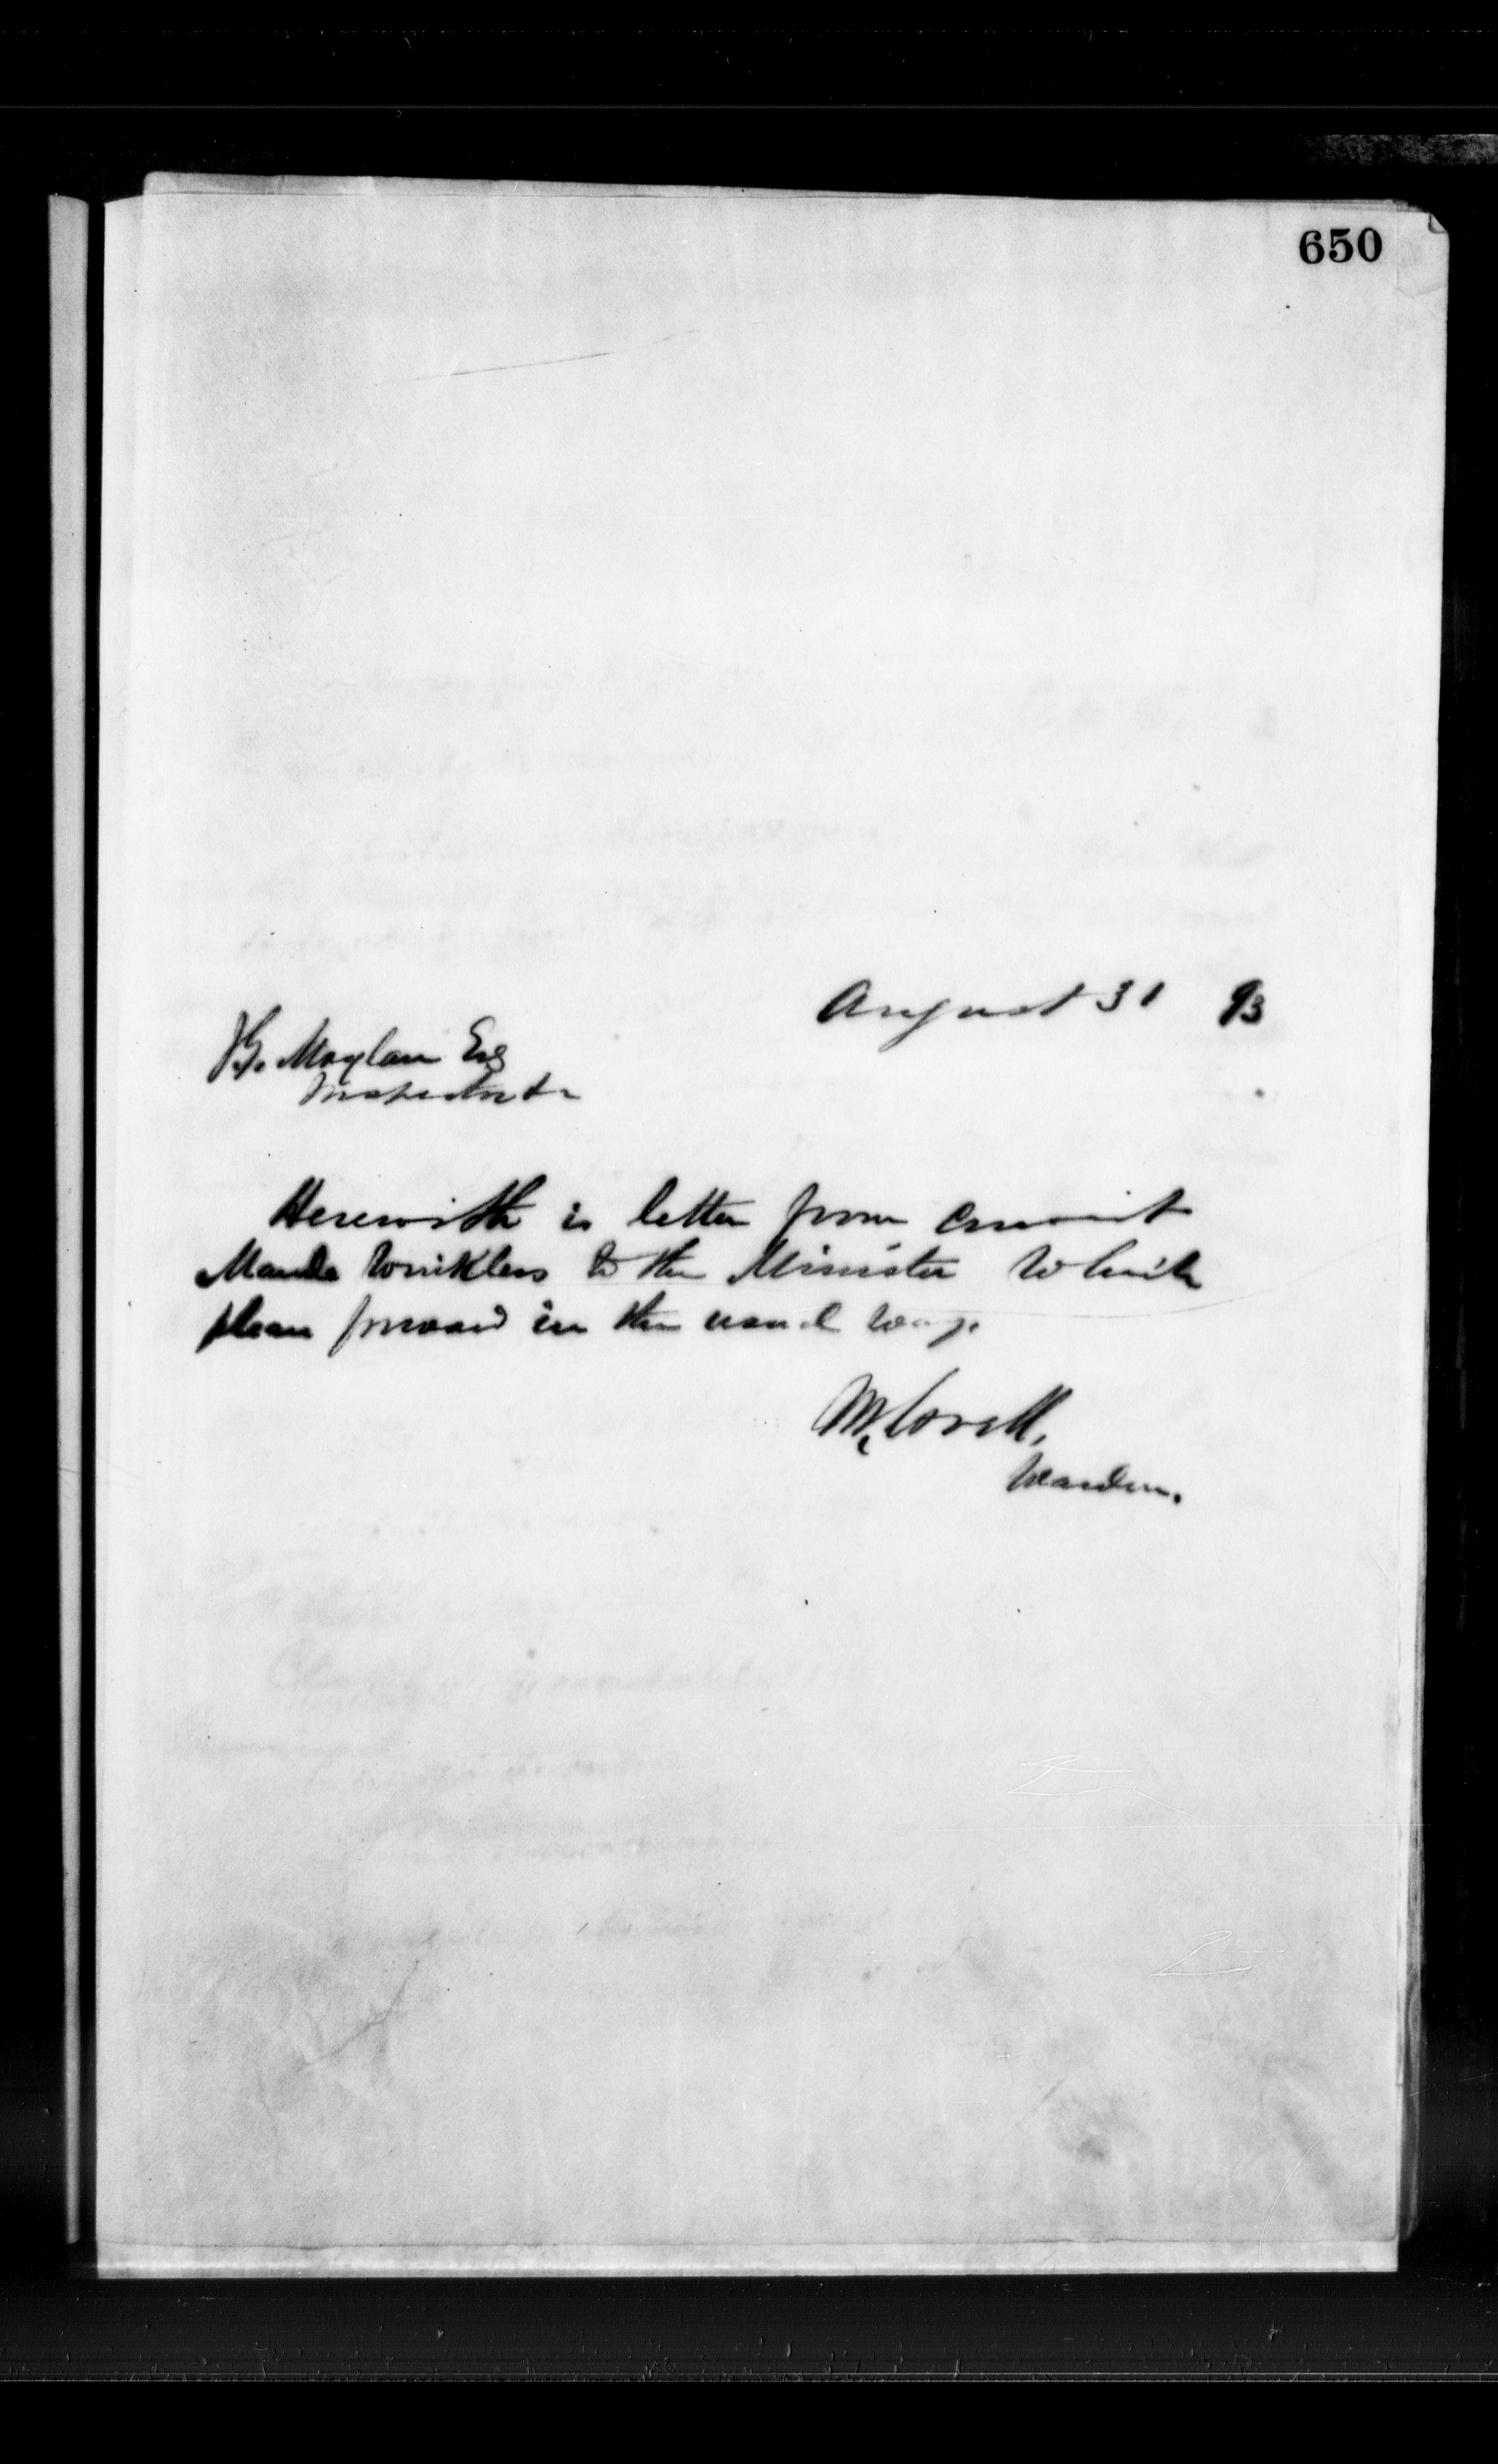 650
August 31 93
J.G. Moylan Esq
Inspector &c
Herewith is letter from convict
Maude to the Minister which
please forward in the usual way.
M. Lavell,
Warden.